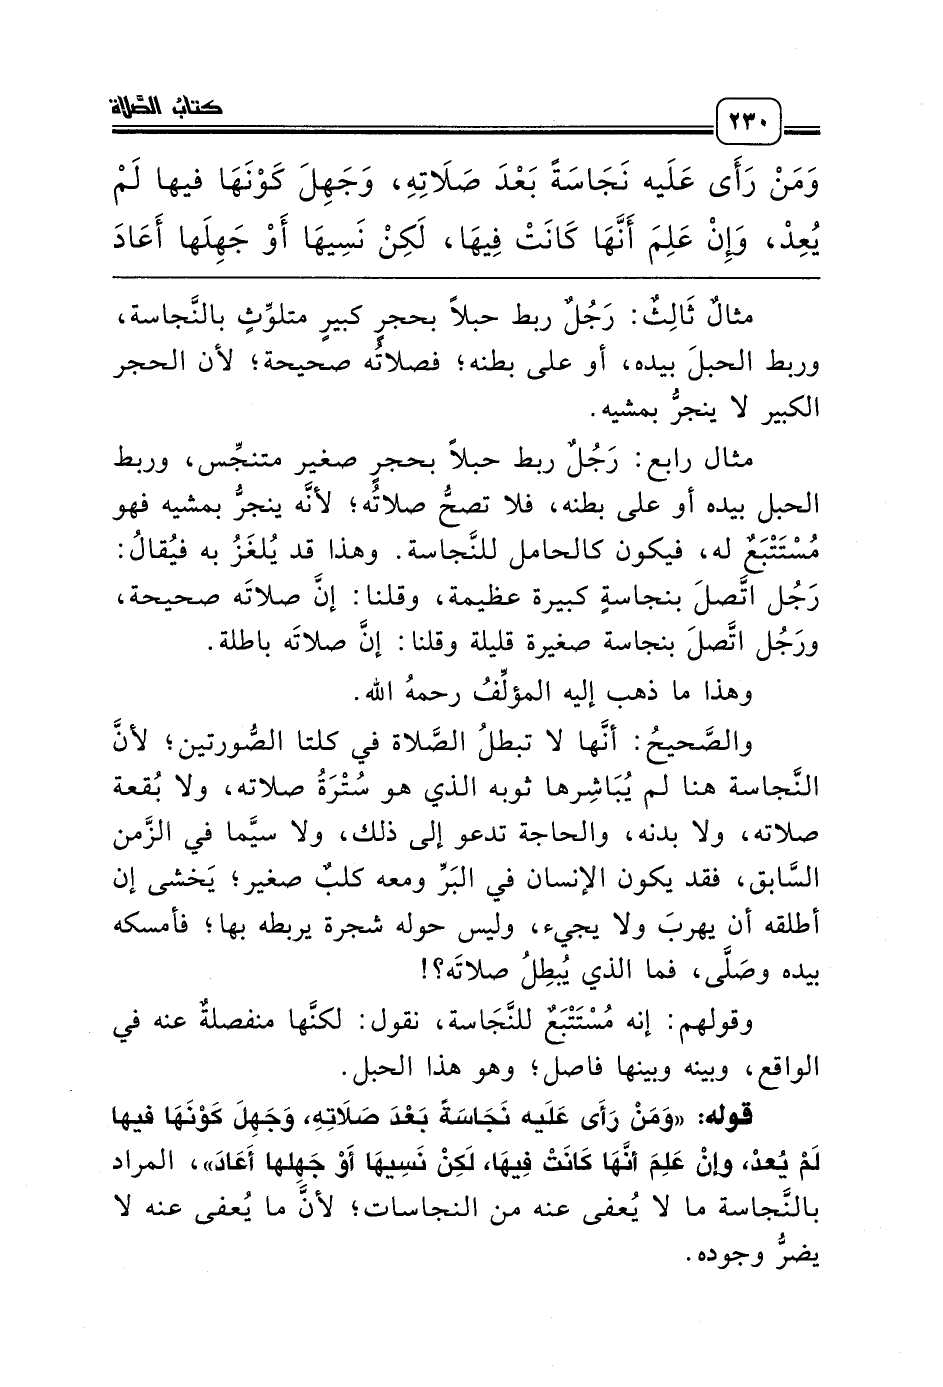 كتاب الصَّلاة
٢٣٠
وَمَنْ رَأَى عَلَيه نَجَاسَةً بَعْدَ صَلَاتِهِ، وَجَهِلَ كَوْنَهَا فيها لَمْ
يُعِدْ، وَإِنْ عَلِمَ أَنَّهَا كَانَتْ فِيهَا، لَكِنْ نَسِيهَا أَوْ جَهِلَها أَعَادَ
مثالٌ ثَالِثٌ: رَجُلٌ ربط حبلاً بحجرٍ كبيرٍ متلوِّثٍ بالنَّجاسة،
وربط الحبلَ بيده، أو على بطنه؛ فصلاتُه صحيحة؛ لأن الحجر
الكبير لا ينجرُّ بمشيه.
مثال رابع: رَجُلٌ ربط حبلاً بحجرٍ صغير متنجِّس، وربط
الحبل بيده أو على بطنه، فلا تصحُّ صلاتُه؛ لأنَّه ينجرُّ بمشيه فهو
مُسْتَتْبَعٌ له، فيكون كالحامل للنَّجاسة. وهذا قد يُلغَزُ به فيُقالُ:
رَجُل اتَّصلَ بنجاسةٍ كبيرة عظيمة، وقلنا: إنَّ صلاتَه صحيحة،
ورَجُل اتَّصلَ بنجاسة صغيرة قليلة وقلنا: إنَّ صلاتَه باطلة.
وهذا ما ذهب إليه المؤلِّفُ رحمهُ الله.
والصَّحيحُ: أنَّها لا تبطلُ الصَّلاة في كلتا الصُّورتين؛ لأنَّ
النَّجاسة هنا لم يُبَاشِرها ثوبه الذي هو سُتْرَةُ صلاته، ولا بُقعة
صلاته، ولا بدنه، والحاجة تدعو إلى ذلك، ولا سيَّما في الزَّمن
السَّابق، فقد يكون الإنسان في البَرِّ ومعه كلبٌ صغير؛ يَخشى إن
أطلقه أن يهربَ ولا يجيء، وليس حوله شجرة يربطه بها؛ فأمسكه
بيده وصَلَّى، فما الذي يُبطِلُ صلاتَه؟!
وقولهم: إنه مُسْتَتْبَعٌ للنَّجَاسة، نقول: لكنَّها منفصلةٌ عنه في
الواقع، وبينه وبينها فاصل؛ وهو هذا الحبل.
قوله: «وَمَنْ رَأى عَلَيه نَجَاسَةً بَعْدَ صَلَاتِهِ، وَجَهِلَ كَوْنَهَا فيها
لَمْ يُعدْ، وإنْ عَلِمَ أنَّهَا كَانَتْ فِيهَا، لَكِنْ نَسِيهَا أوْ جَهِلها أعَادَ»، المراد
بالنَّجاسة ما لا يُعفى عنه من النجاسات؛ لأنَّ ما يُعفى عنه لا
يضرُّ وجوده.